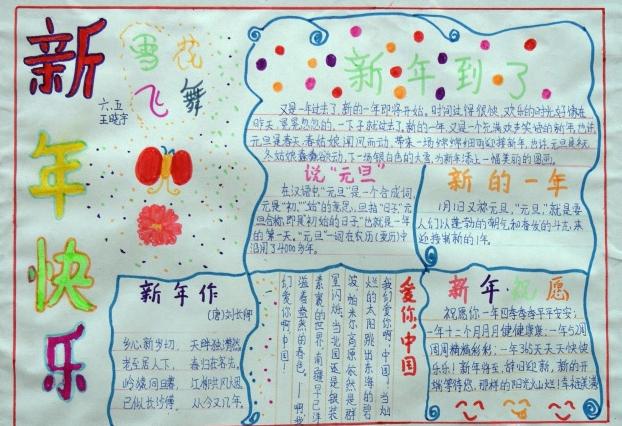 新年快乐
雪花
飞舞
六.五
王晓宇
新年到了
又是一年过去了,新的一年即将开始。时间过得很快,欢乐的时光好像在
昨天,匆匆忽忽的,一下子就过去了。新的一年,又是一个充满欢声笑语的新年,也许
元旦是春天,春姑娘闻风而动,带来一场绵绵细雨迎接新年,也许,元旦是冬天,
冬姑娘蠢蠢欲动,下一场银白色的大雪,为新年添上一幅美丽的图画。
说“元旦”
在汉语中“元旦”是一个合成词,
元是“初”“始”的意思,旦指“日子”,元
旦合称,即是“初始的日子”也就是一年
的第一天。“元旦”一词在农历(夏历)中
沿用了4000多年。
新的一年
1月1日又称元旦,“元旦,”就是要
人们以蓬勃的朝气和奋发的斗志,来
迎接崭新的1年。
新年作
(唐)刘长卿
乡心新岁切, 天畔独潸然。
老至居人下, 春归在客先。
岭猿同旦暮, 江柳共风烟。
已似长沙傅, 从今又几年。
爱你,中国
我们爱你啊,中国!当灿
烂的太阳跳出东海的碧
波,帕米尔高原依然是群
星闪烁;当北国还是银装
素裹的世界,南疆早已洋
溢着盎然的春色。——啊,我
们爱你啊,中国!
新年祝愿
祝愿你一年四季季季平平安安;
一年十二个月月月健健康康;一年52周
周周精精彩彩;一年365天天天快快
乐乐!新年将至,辞旧迎新,新的开
端等待您,那样的阳光火山烂!幸福美满